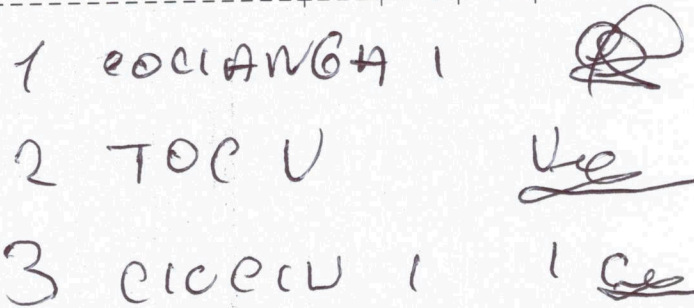 1 COCIANGA I
2 TOC V
3 CICCIU I